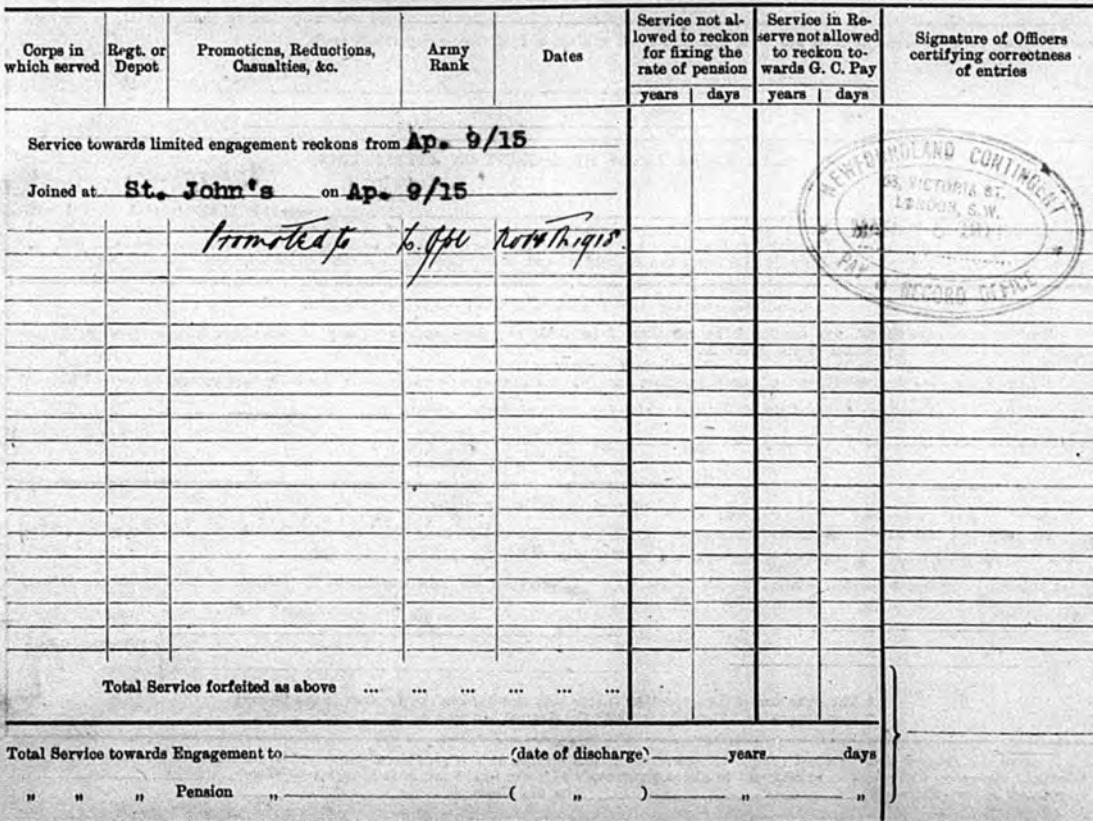 Corps in which served
Regt. or Depot
Promotions, Reductions, Casualties, &c.
Army Rank
Dates
Service not allowed to reckon for fixing the rate of pension
years days
Service in Reserve not allowed to reckon towards G. C. Pay
years days
Signature of Officers certifying correctness of entries
Service towards limited engagement reckons from Ap. 9/15
Joined at St. John's on Ap. 9/15
Promoted to L. Cpl 1918.
NEWFOUNDLAND CONTINGENT
58, VICTORIA ST.
LONDON, S.W.
PAY & RECORD OFFICE
Total Service forfeited as above ... ... ... ... ... ...
Total Service towards Engagement to (date of discharge) years days
" " " Pension " ( " ) " "